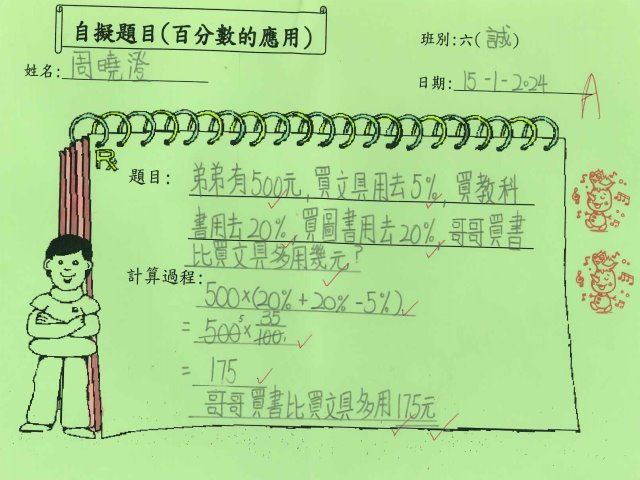 自擬題目(百分數的應用)
班別:六(誠)
姓名:周曉澄
日期:15-1-2024
A
題目:弟弟有500元,買文具用去5%,買教科
書用去20%,買圖書用去20%,哥哥買書
比買文具多用幾元?
計算過程:
500×(20%+20%-5%)
=500⁵×35/100
=175
哥哥買書比買文具多用175元